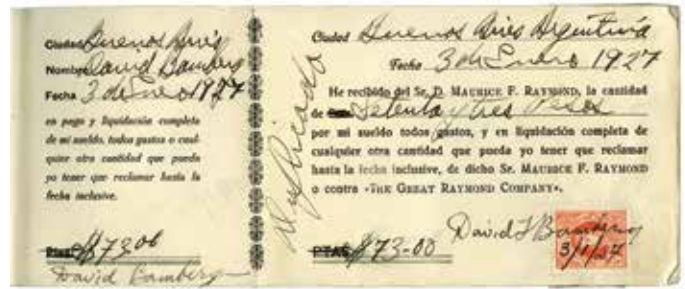 Ciudad Buenos Aires
Nombre David Bamberg
Fecha 3 de Enero 1927
en pago y liquidación completa
de mi sueldo, todos gastos o cual-
quier otra cantidad que pueda
yo tener que reclamar hasta la
fecha inclusive.
Ptas. $73.00
David Bamberg
Duplicado
Ciudad Buenos Aires Argentina
Fecha 3 de Enero 1927
He recibido del Sr. D. MAURICE F. RAYMOND, la cantidad
de Setenta y tres Pesos
por mi sueldo todos gastos, y en liquidación completa de
cualquier otra cantidad que pueda yo tener que reclamar
hasta la fecha inclusive, de dicho Sr. MAURICE F. RAYMOND
o contra «THE GREAT RAYMOND COMPANY».
David T Bamberg
PTAS $73-00
3/1/27